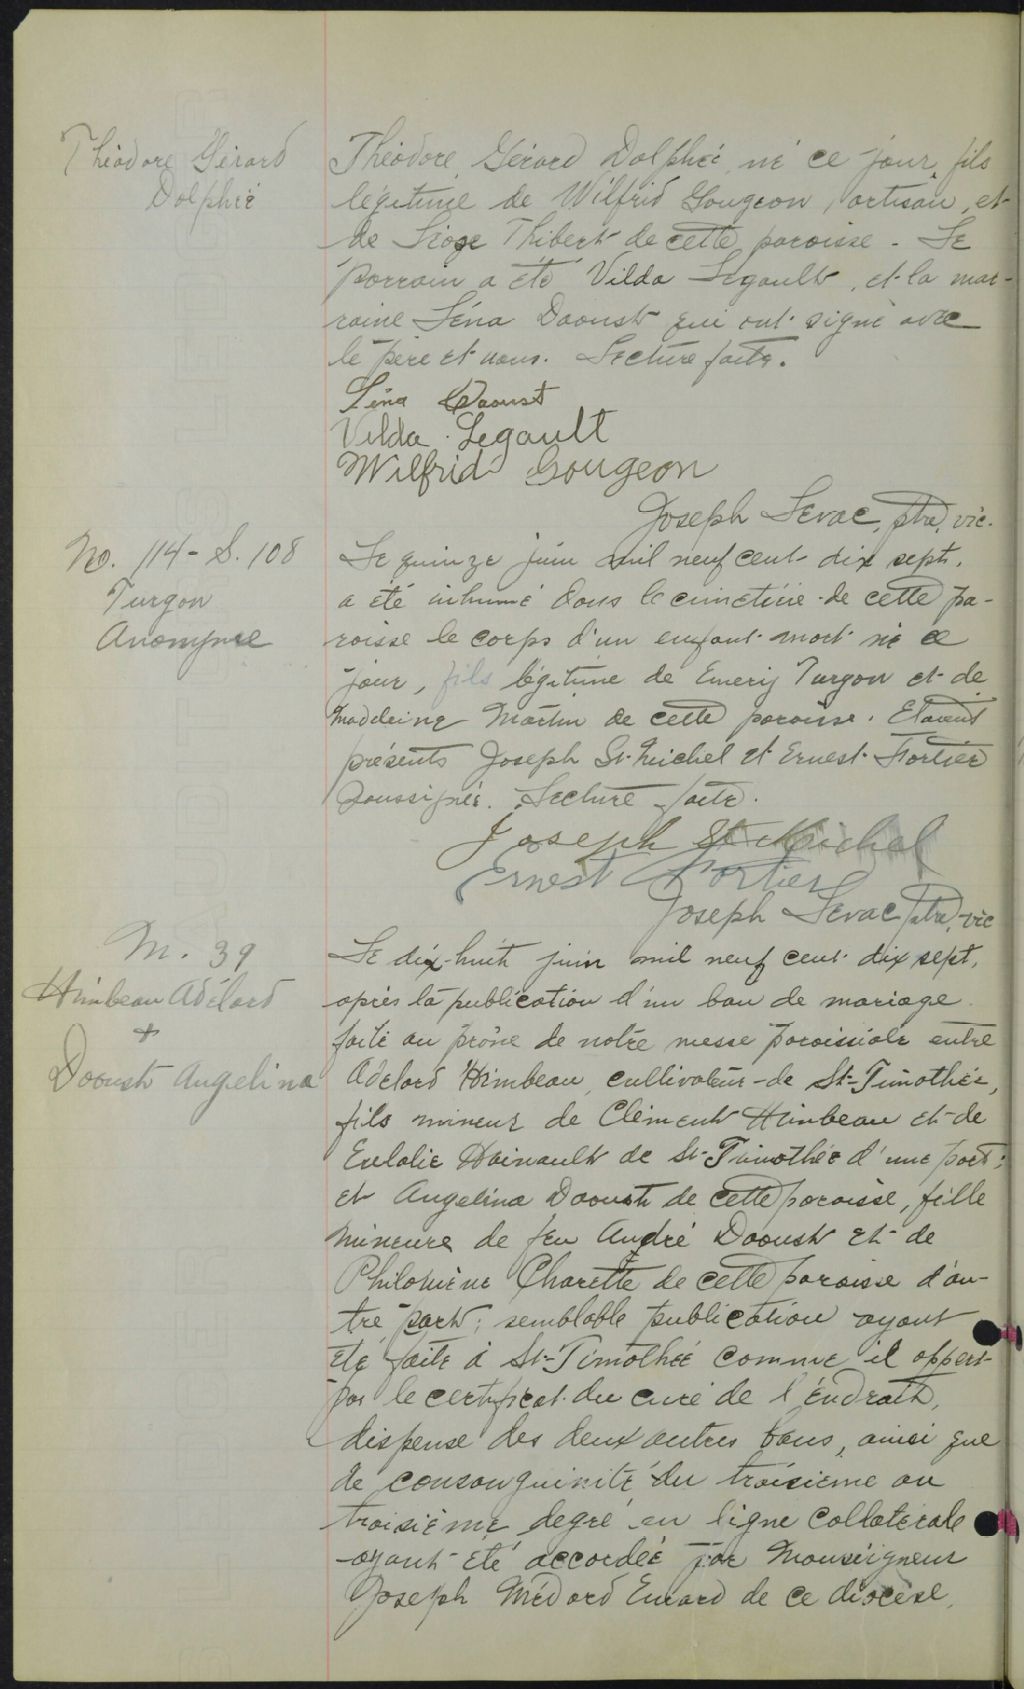 Théodore Gérard
Dolphée
Théodore Gérard Dolphée né ce jour, fils
légitime de Wilfrid Gougeon, artisan, et
de Thibert de cette paroisse - Le
parrain a été Vilda Legault, et la mar-
raine Léna Daoust qui ont signé avec
le père et nous. Lecture faite.
Léna Daoust
Vilda Legault
Wilfrid Gougeon
Joseph Levac, ptre, vic.
No. 114 - S. 108
Turgon
Anonyme
Le quinze juin mil neuf cent dix sept,
a été inhumé dans le cimetière de cette pa-
roisse le corps d'un enfant mort né ce
jour, fils légitime de Emery Turgon et de
Madeleine Martin de cette paroisse. Etaient
présents Joseph St-Michel et Ernest Fortier
soussignés. Lecture faite.
Joseph St Michel
Ernest Fortier
Joseph Levac ptre, vic
M. 39
Himbeau Adélard
+
Daoust Angelina
Le dix-huit juin mil neuf cent dix sept,
après la publication d'un ban de mariage
faite au prône de notre messe paroissiale entre
Adélard Himbeau, cultivateur de St-Timothée,
fils mineur de Clément Himbeau et de
Eulalie Hainault de St-Timothée d'une part;
et Angelina Daoust de cette paroisse, fille
mineure de feu André Daoust et de
Philomène Charette de cette paroisse d'au-
tre part; semblable publication ayant
été faite à St-Timothée comme il appert
par le certificat du curé de l'endroit,
dispense des deux autres bans, ainsi que
de consanguinité du troisième au
troisième degré en ligne collatérale
ayant été accordée par Monseigneur
Joseph Médard Emard de ce diocèse,